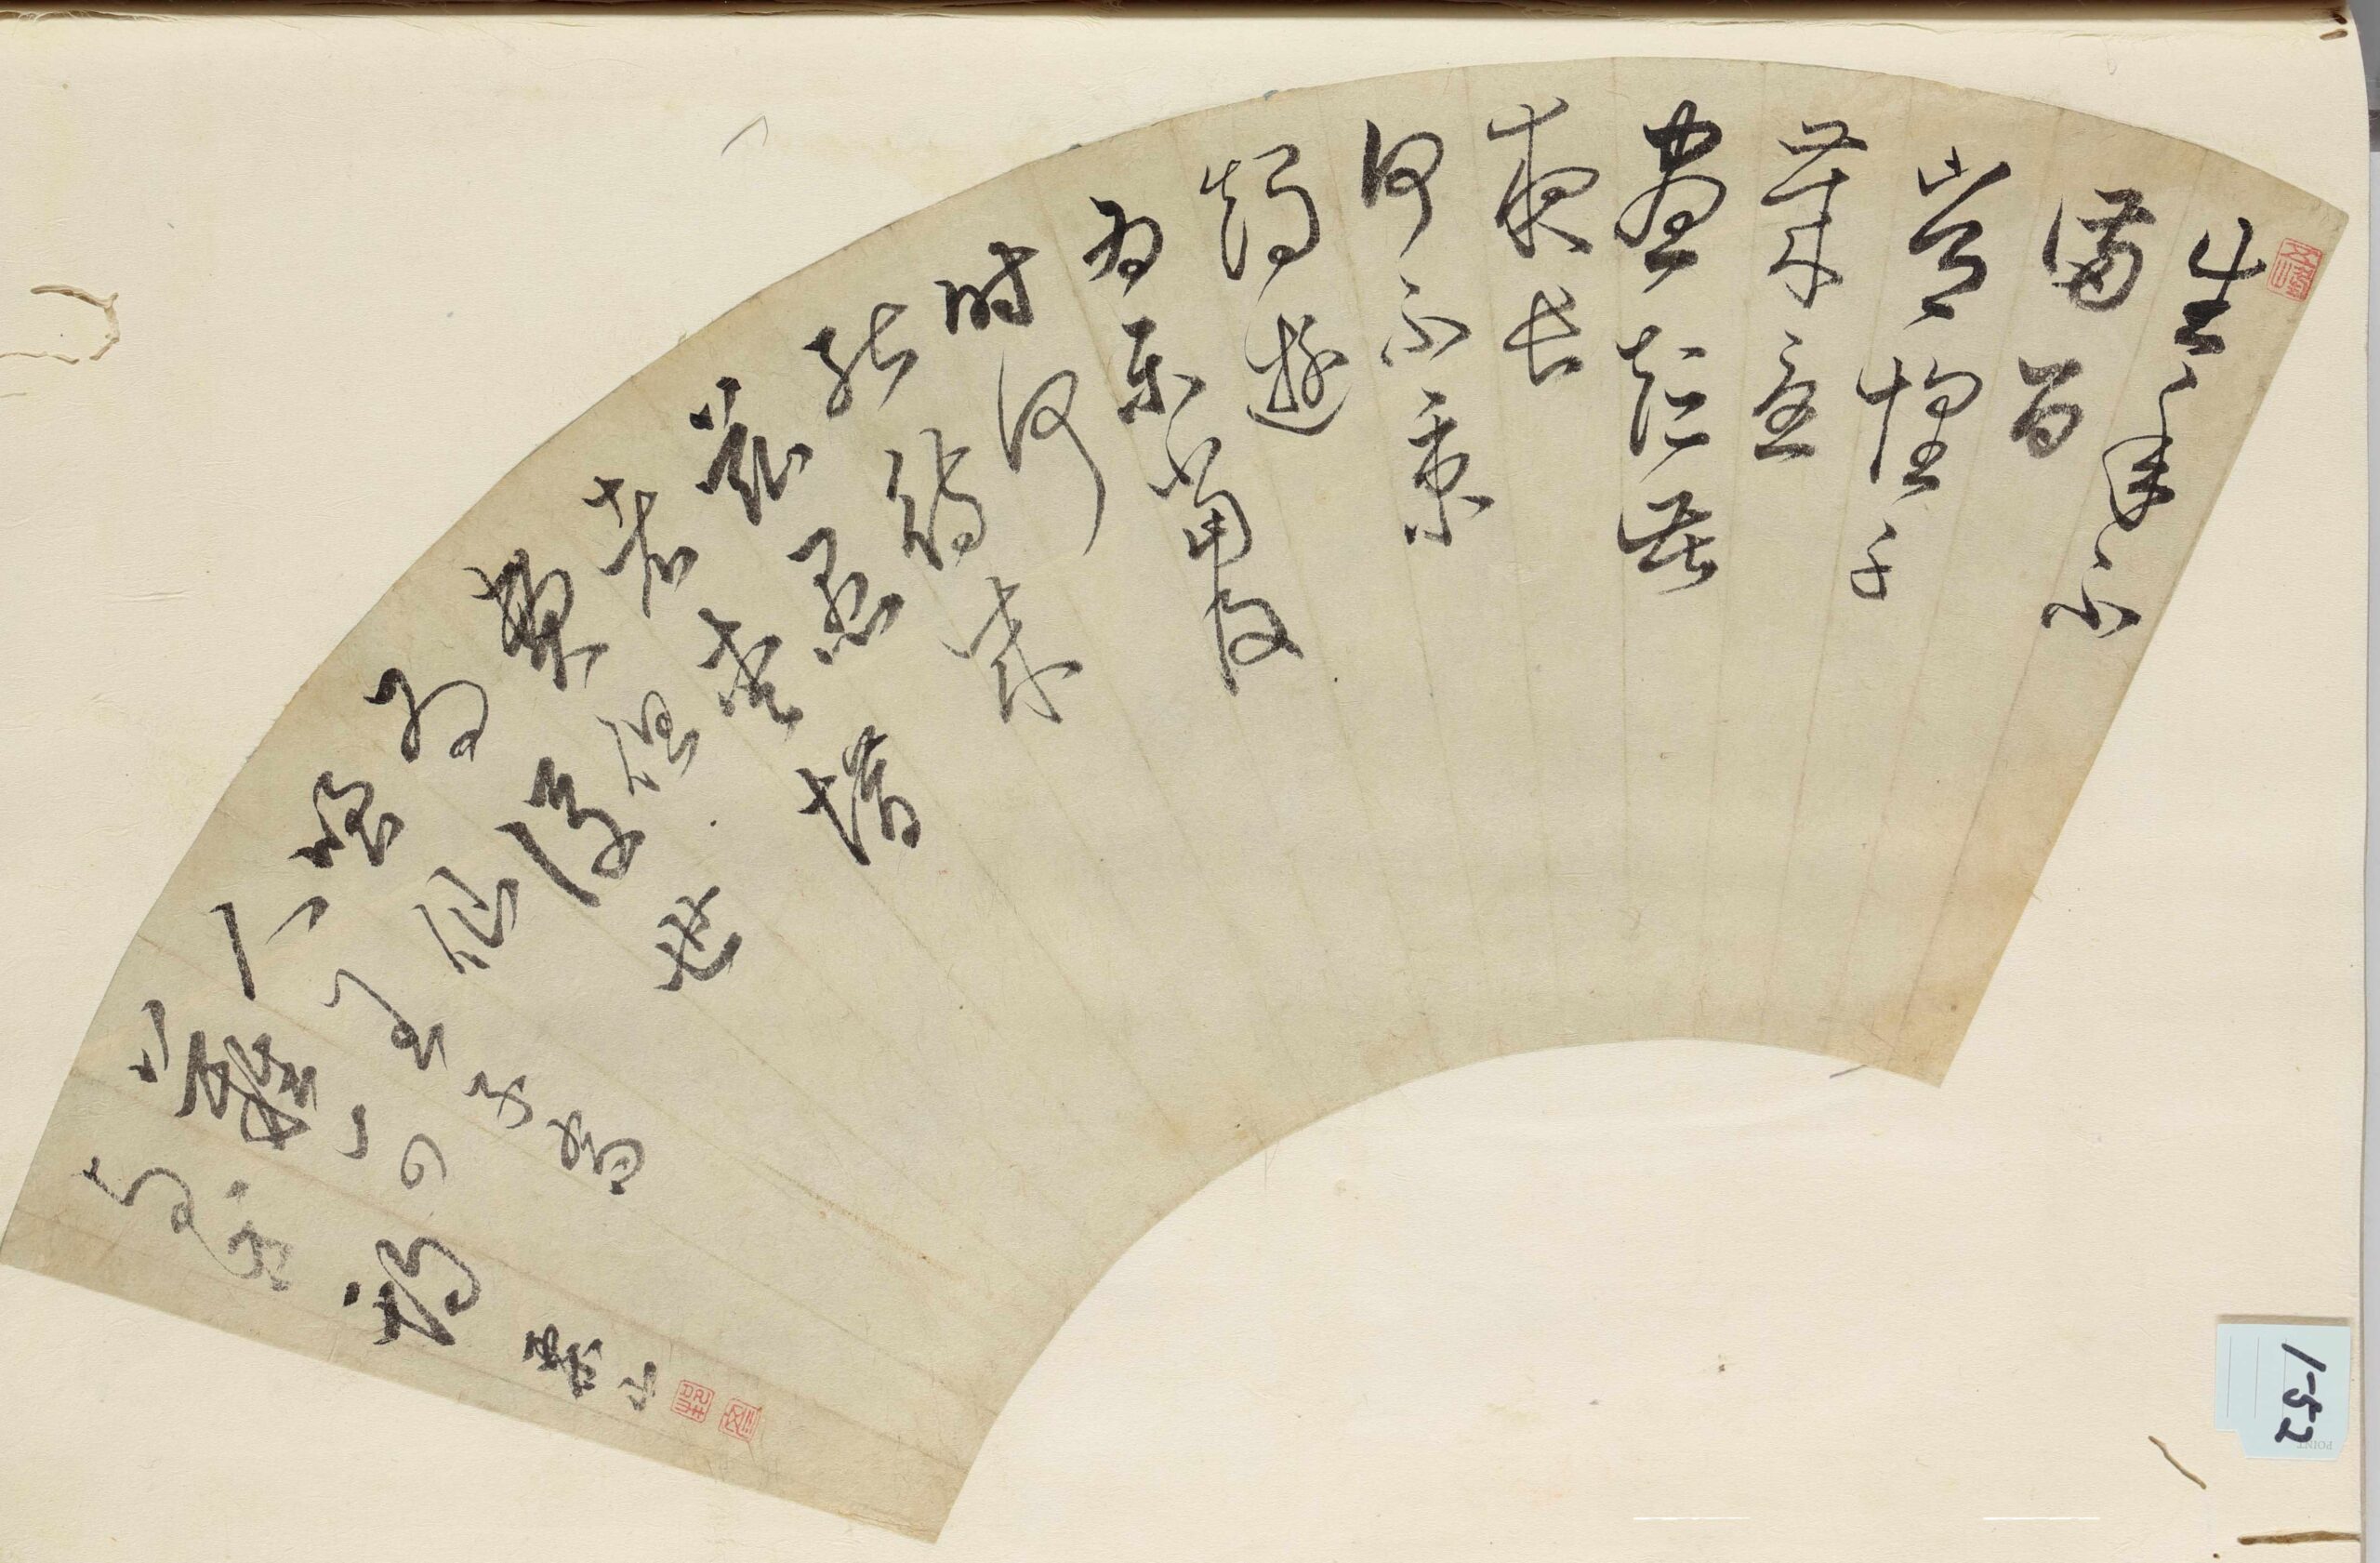 生年不
滿百
常懷千
歲憂
晝短苦
夜長
何不秉
燭遊
為樂當及
時何
能待來
茲愚
者愛惜
費但
為後世
嗤仙
人王子喬
難可
與等期
1-52